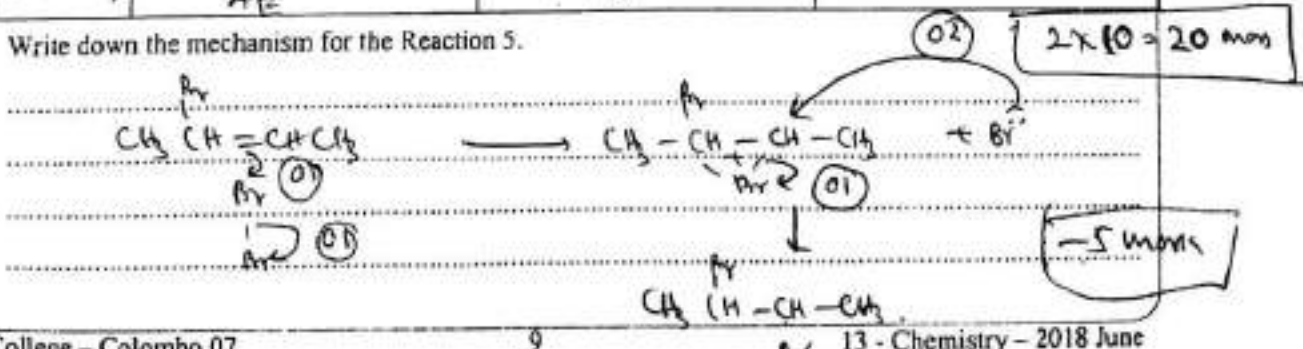 Write down the mechanism for the Reaction 5.
02
2 x 10 = 20
Br
Br
CH3 CH = CH CH3 ⟶ CH3 - CH - CH - CH3 + Br
+
Br 01
Br 01
Br 01
-5
Br
CH3 CH - CH - CH3
College – Colombo 07
9
13 - Chemistry – 2018 June